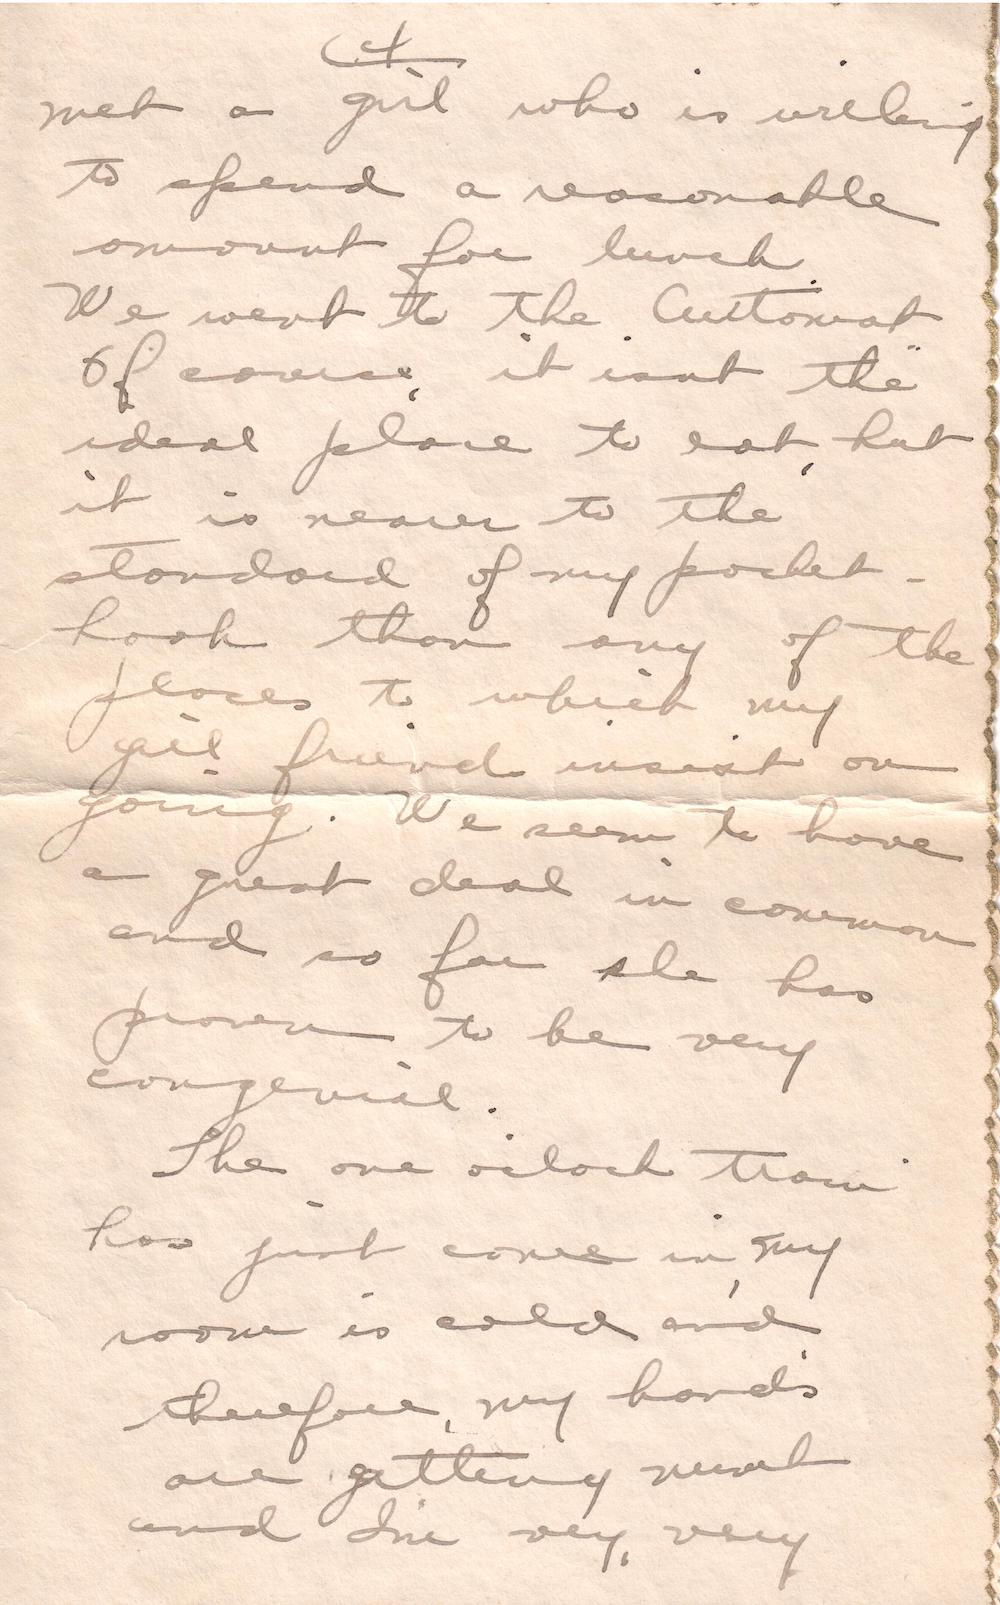 4
met a girl who is willing
to spend a reasonable
amount for lunch.
We went to the Automat
Of course, it isnt "the"
ideal place to eat, but
it is nearer to the
standard of my pocket-
book than any of the
places to which my
girl friend insist on
going. We seem to have
a great deal in common
and so far she has
proven to be very
congenial.
The one o'clock train
has just come in, my
room is cold and
therefore, my hands
are getting numb
and I'm very, very